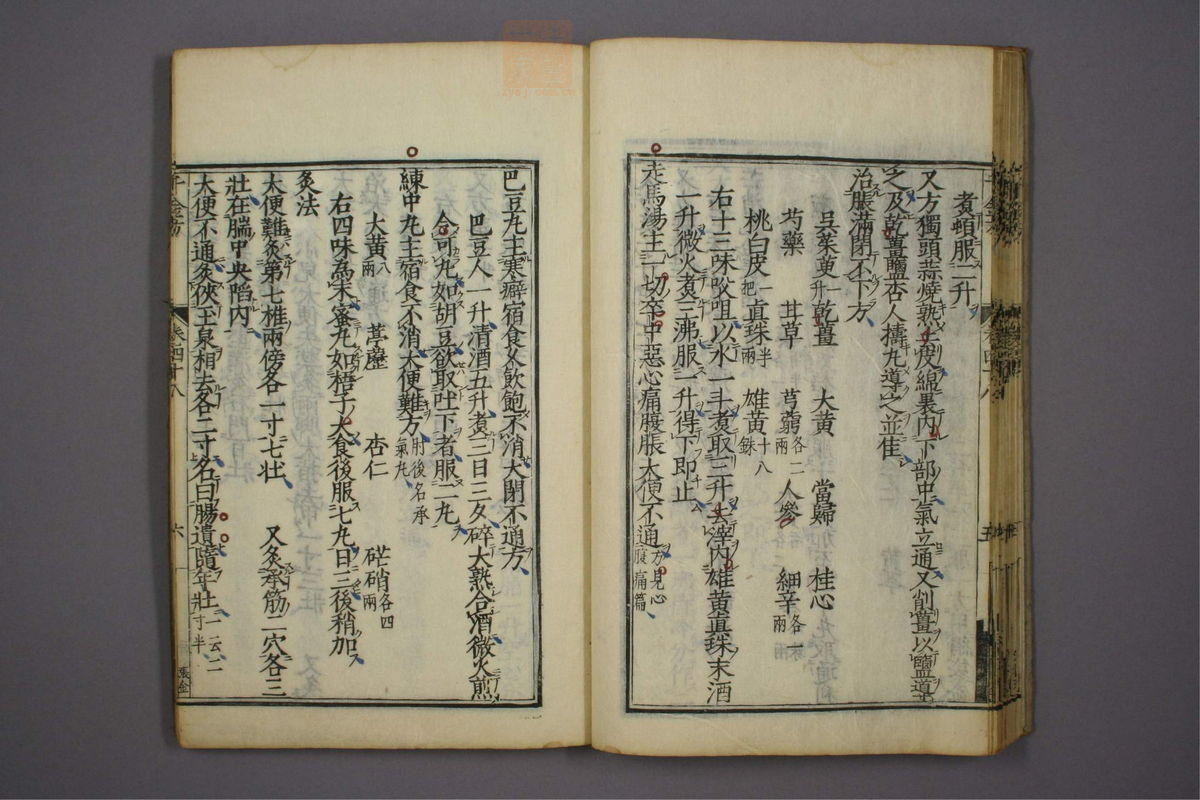 煑頓服二升
又方獨頭蒜燒熟去皮綿裹内下部中氣立通又削薑以鹽導
之及乾薑鹽杏人擣丸導之並佳
治脹滿閉不下方
吳茱萸一升 乾薑 大黄 當歸 桂心
芍藥 甘草 芎藭各二兩 人參 細辛各一兩
桃白皮一把 真珠半兩 雄黄十八銖
右十三味㕮咀以水一斗煑取三升去滓内雄黄真珠末酒
一升微火煑三沸服一升得下即止
走馬湯主一切卒中惡心痛腹脹大便不通方見心腹痛篇
巴豆丸主寒癖宿食久飲飽不消大閉不通方
巴豆人一升清酒五升煑三日三夕碎大熟合酒微火煎
令可丸如胡豆欲取吐下者服二丸
練中丸主宿食不消大便難方肘後名承氣丸
大黄八兩 葶藶 杏仁 芒硝各四兩
右四味爲末蜜丸如梧子大食後服七丸日三後稍加
灸法
大便難灸第七椎兩傍各一寸七壯 又灸承筋二穴各三
壯在腨中央陷内
大便不通灸俠玉泉相去各二寸名曰腸遺隨年壯一云二寸半
千金方
卷四十八
六
張金
五